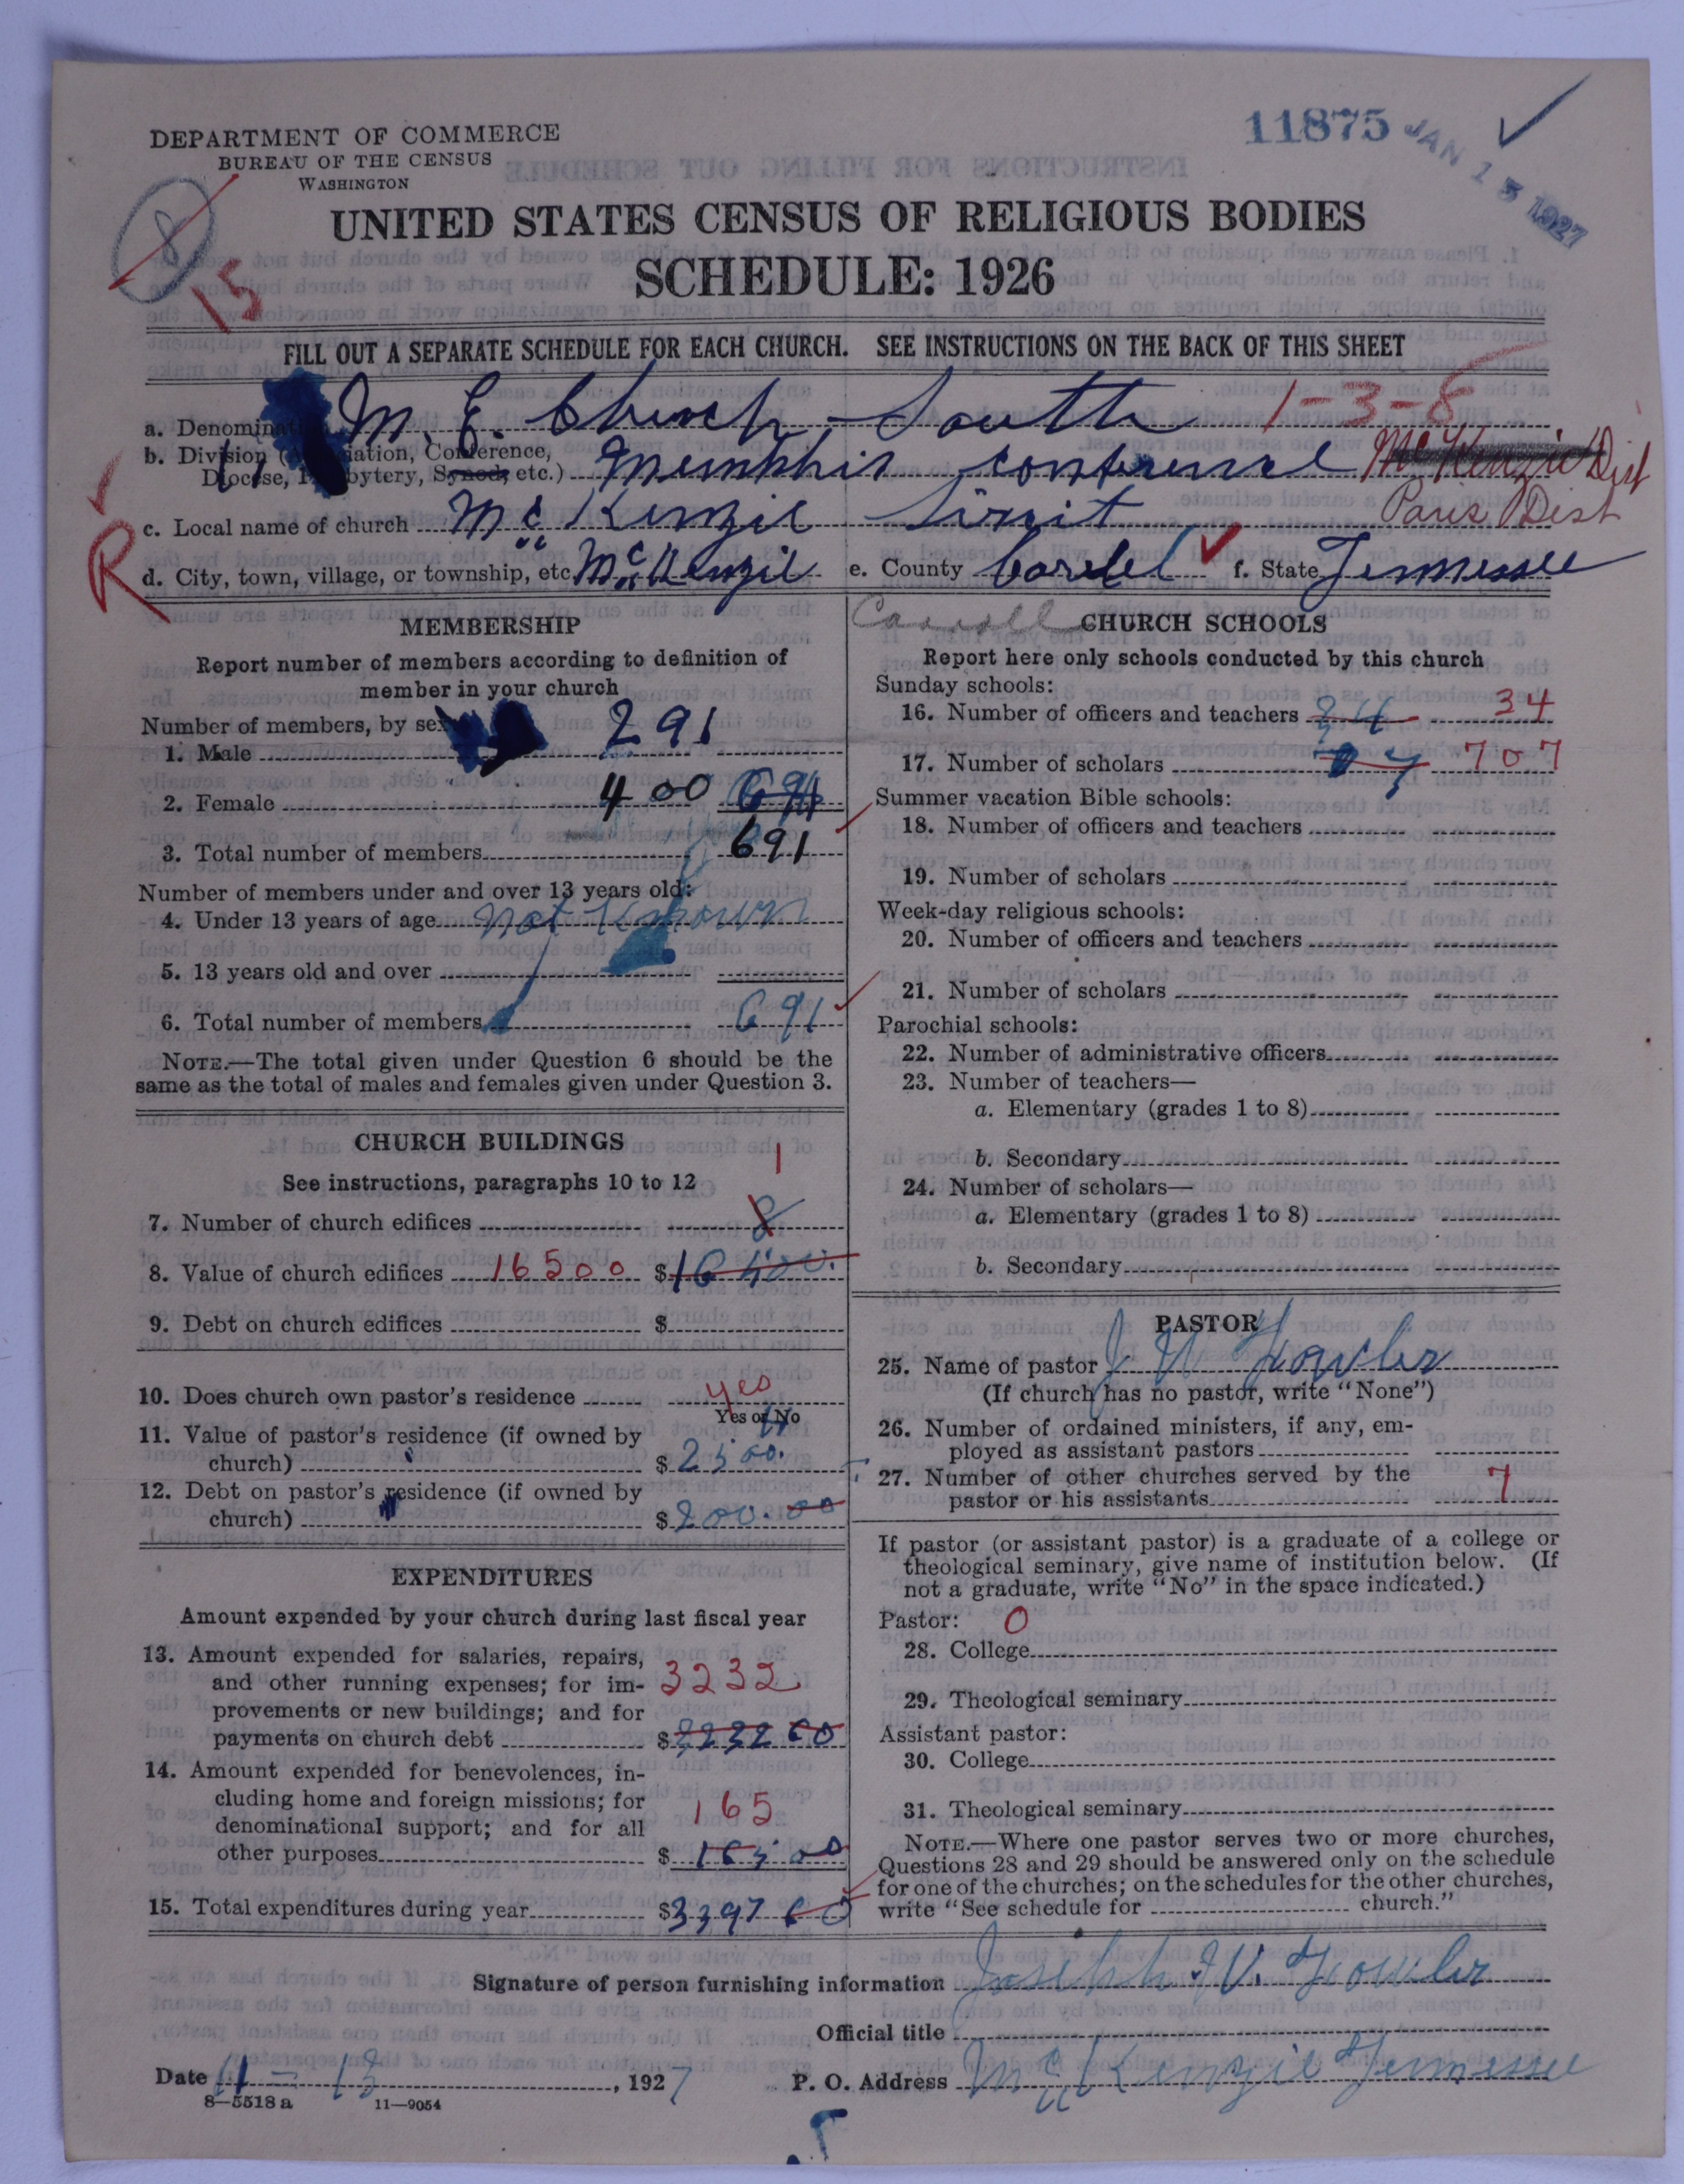 11875 JAN 13 1927
DEPARTMENT OF COMMERCE
BUREAU OF THE CENSUS
WASHINGTON
8
15
UNITED STATES CENSUS OF RELIGIOUS BODIES
SCHEDULE: 1926
FILL OUT A SEPARATE SCHEDULE FOR EACH CHURCH. SEE INSTRUCTIONS ON THE BACK OF THIS SHEET
a. Denominat M. E. Church, South 1-3-8
b. Division ( iation, Conference,
Diocese, bytery, Synod, etc.) Memphis conference McKenzie Dist
c. Local name of church McKenzie Sirzit Paris Dist
R
d. City, town, village, or township, etc. McKenzie e. County f. State Tennessee
Carroll
MEMBERSHIP
Report number of members according to definition of
member in your church
Number of members, by sex
1. Male 291
2. Female 400 691
3. Total number of members 691
Number of members under and over 13 years old:
4. Under 13 years of age not known
5. 13 years old and over
6. Total number of members 691
NOTE.—The total given under Question 6 should be the
same as the total of males and females given under Question 3.
CHURCH BUILDINGS
1
See instructions, paragraphs 10 to 12
7. Number of church edifices 8
8. Value of church edifices 16500 $16500.
9. Debt on church edifices $
10. Does church own pastor's residence yes
Yes or No
11. Value of pastor's residence (if owned by
church) $2500.
12. Debt on pastor's residence (if owned by
church) $200.00
EXPENDITURES
Amount expended by your church during last fiscal year
13. Amount expended for salaries, repairs,
and other running expenses; for im-
provements or new buildings; and for
payments on church debt 3232 $3232 60
14. Amount expended for benevolences, in-
cluding home and foreign missions; for
denominational support; and for all
other purposes 165 $165 00
15. Total expenditures during year $3397 60
CHURCH SCHOOLS
Report here only schools conducted by this church
Sunday schools:
16. Number of officers and teachers 34 34
17. Number of scholars 707
Summer vacation Bible schools:
18. Number of officers and teachers
19. Number of scholars
Week-day religious schools:
20. Number of officers and teachers
21. Number of scholars
Parochial schools:
22. Number of administrative officers
23. Number of teachers—
a. Elementary (grades 1 to 8)
b. Secondary
24. Number of scholars—
a. Elementary (grades 1 to 8)
b. Secondary
PASTOR
25. Name of pastor J W Fowler
(If church has no pastor, write "None")
26. Number of ordained ministers, if any, em-
ployed as assistant pastors
27. Number of other churches served by the
pastor or his assistants 7
If pastor (or assistant pastor) is a graduate of a college or
theological seminary, give name of institution below. (If
not a graduate, write "No" in the space indicated.)
Pastor: 0
28. College
29. Theological seminary
Assistant pastor:
30. College
31. Theological seminary
NOTE.—Where one pastor serves two or more churches,
Questions 28 and 29 should be answered only on the schedule
for one of the churches; on the schedules for the other churches,
write "See schedule for church."
Signature of person furnishing information Joseph W. Fowler
Official title
Date 11 - 13, 1927 P. O. Address McKenzie Tennessee
8—5518 a 11—9054